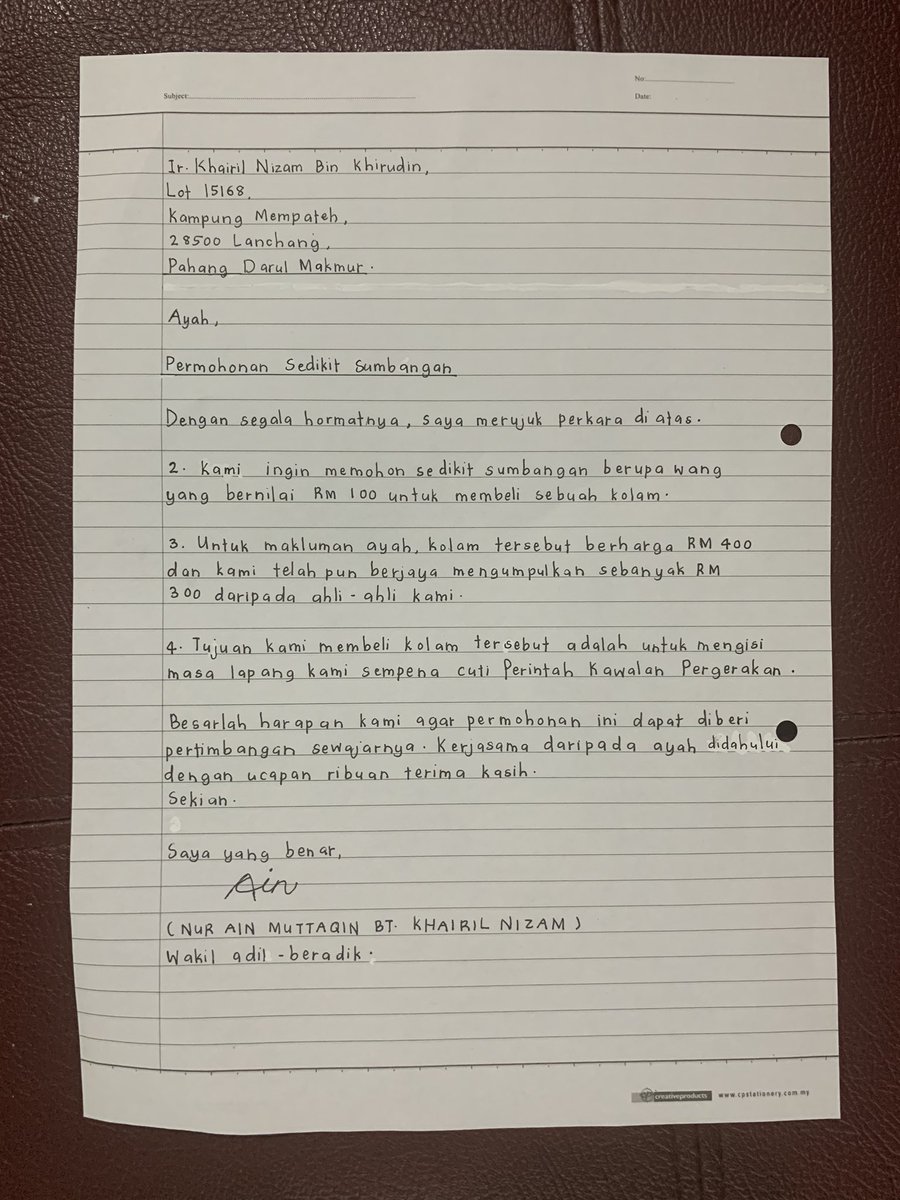 No:
Subject:
Date:
Ir. Khairil Nizam Bin Khirudin,
Lot 15168,
Kampung Mempateh,
28500 Lanchang,
Pahang Darul Makmur.
Ayah,
Permohonan Sedikit Sumbangan
Dengan segala hormatnya, saya merujuk perkara di atas.
2. Kami ingin memohon sedikit sumbangan berupa wang
yang bernilai RM 100 untuk membeli sebuah kolam.
3. Untuk makluman ayah, kolam tersebut berharga RM 400
dan kami telah pun berjaya mengumpulkan sebanyak RM
300 daripada ahli - ahli kami.
4. Tujuan kami membeli kolam tersebut adalah untuk mengisi
masa lapang kami sempena cuti Perintah Kawalan Pergerakan.
Besarlah harapan kami agar permohonan ini dapat diberi
pertimbangan sewajarnya. Kerjasama daripada ayah didahului
dengan ucapan ribuan terima kasih.
Sekian.
Saya yang benar,
Ain
(NUR AIN MUTTAQIN BT. KHAIRIL NIZAM)
Wakil adil - beradik.
creativeproducts www.cpstationery.com.my